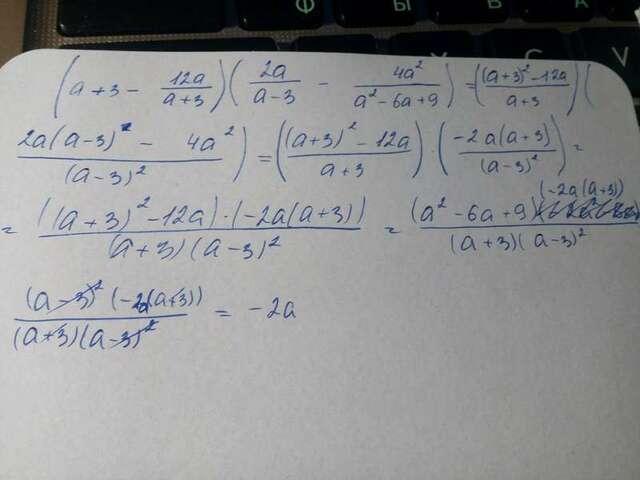 Ф Ы В
V
(a+3 - 12a/(a+3)) (2a/(a-3) - 4a²/(a²-6a+9)) = (((a+3)²-12a)/(a+3)) (
(2a(a-3) - 4a²)/(a-3)²) = (((a+3)²-12a)/(a+3)) · (-2a(a+3)/(a-3)²) =
= ((a+3)²-12a)·(-2a(a+3))/((a+3)(a-3)²) = (a²-6a+9)(-2a(a+3))/((a+3)(a-3)²)
(a-3)²(-2a(a+3))/((a+3)(a-3)²) = -2a